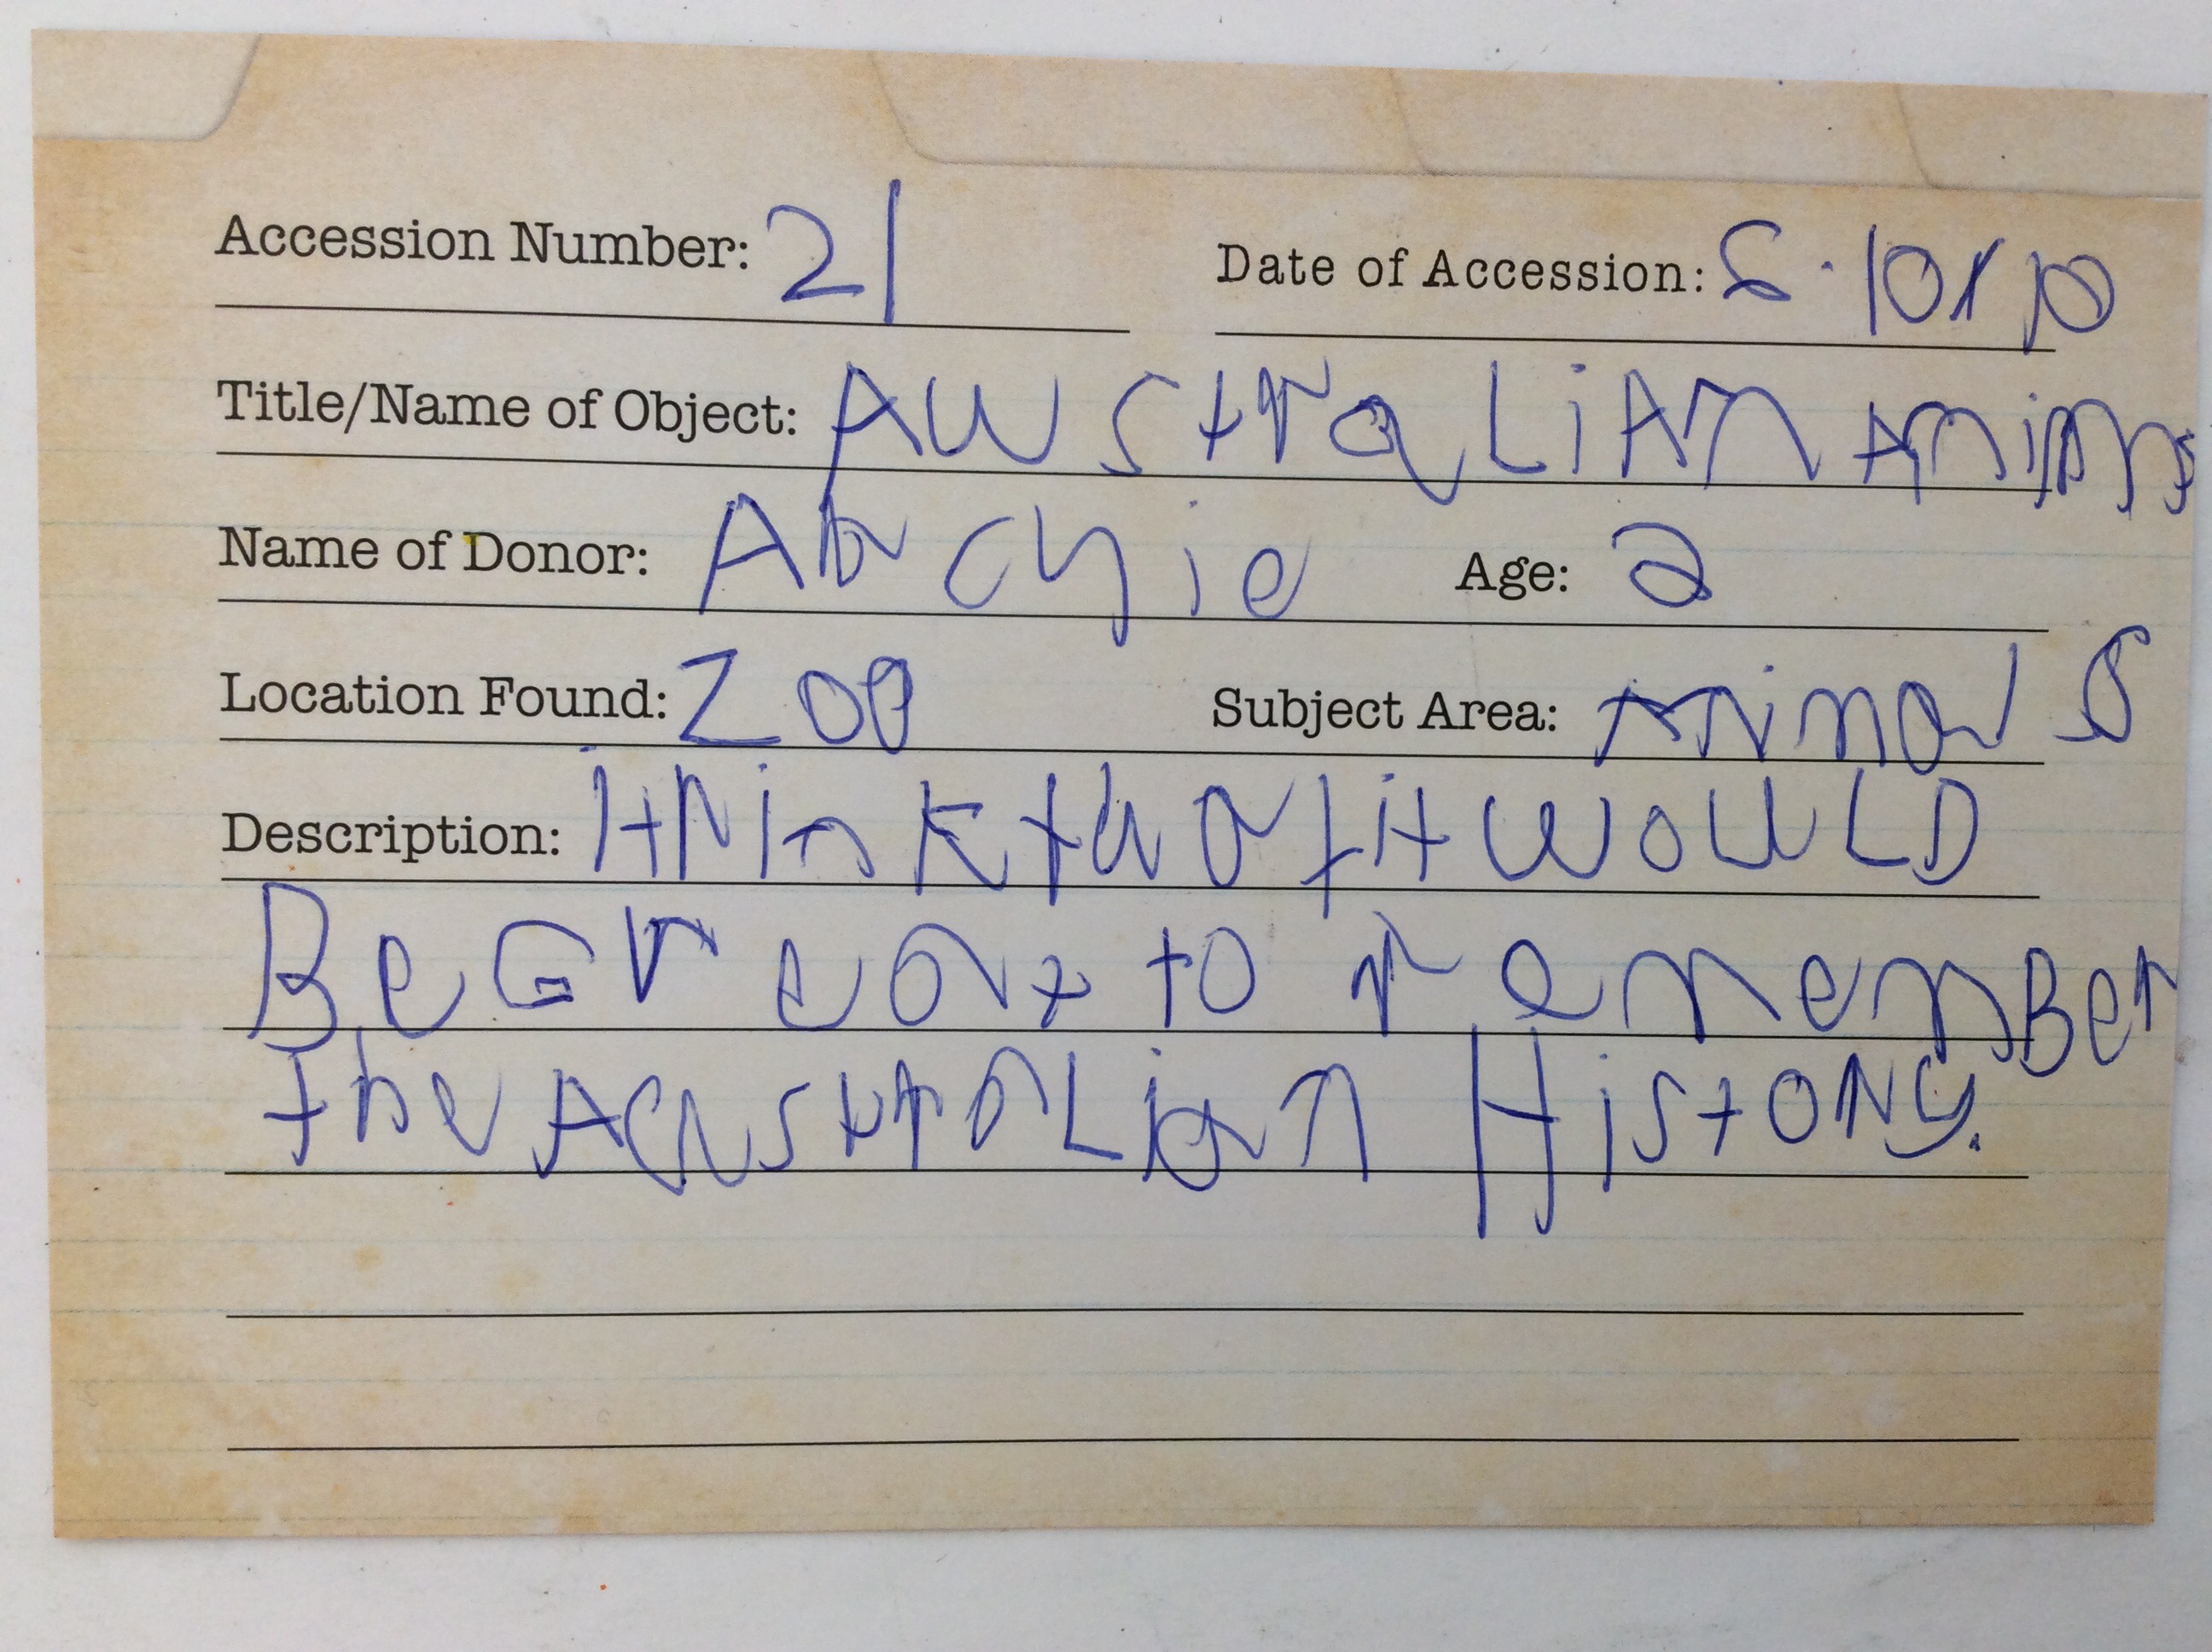 Accession Number: 21 Date of Accession:
Title/Name of Object: AWstraLiAn
Name of Donor: Archie Age:
Location Found: Zoo Subject Area: Animals
Description: i think that it WOULD
Be Great to rememBer
the AustraLian History.